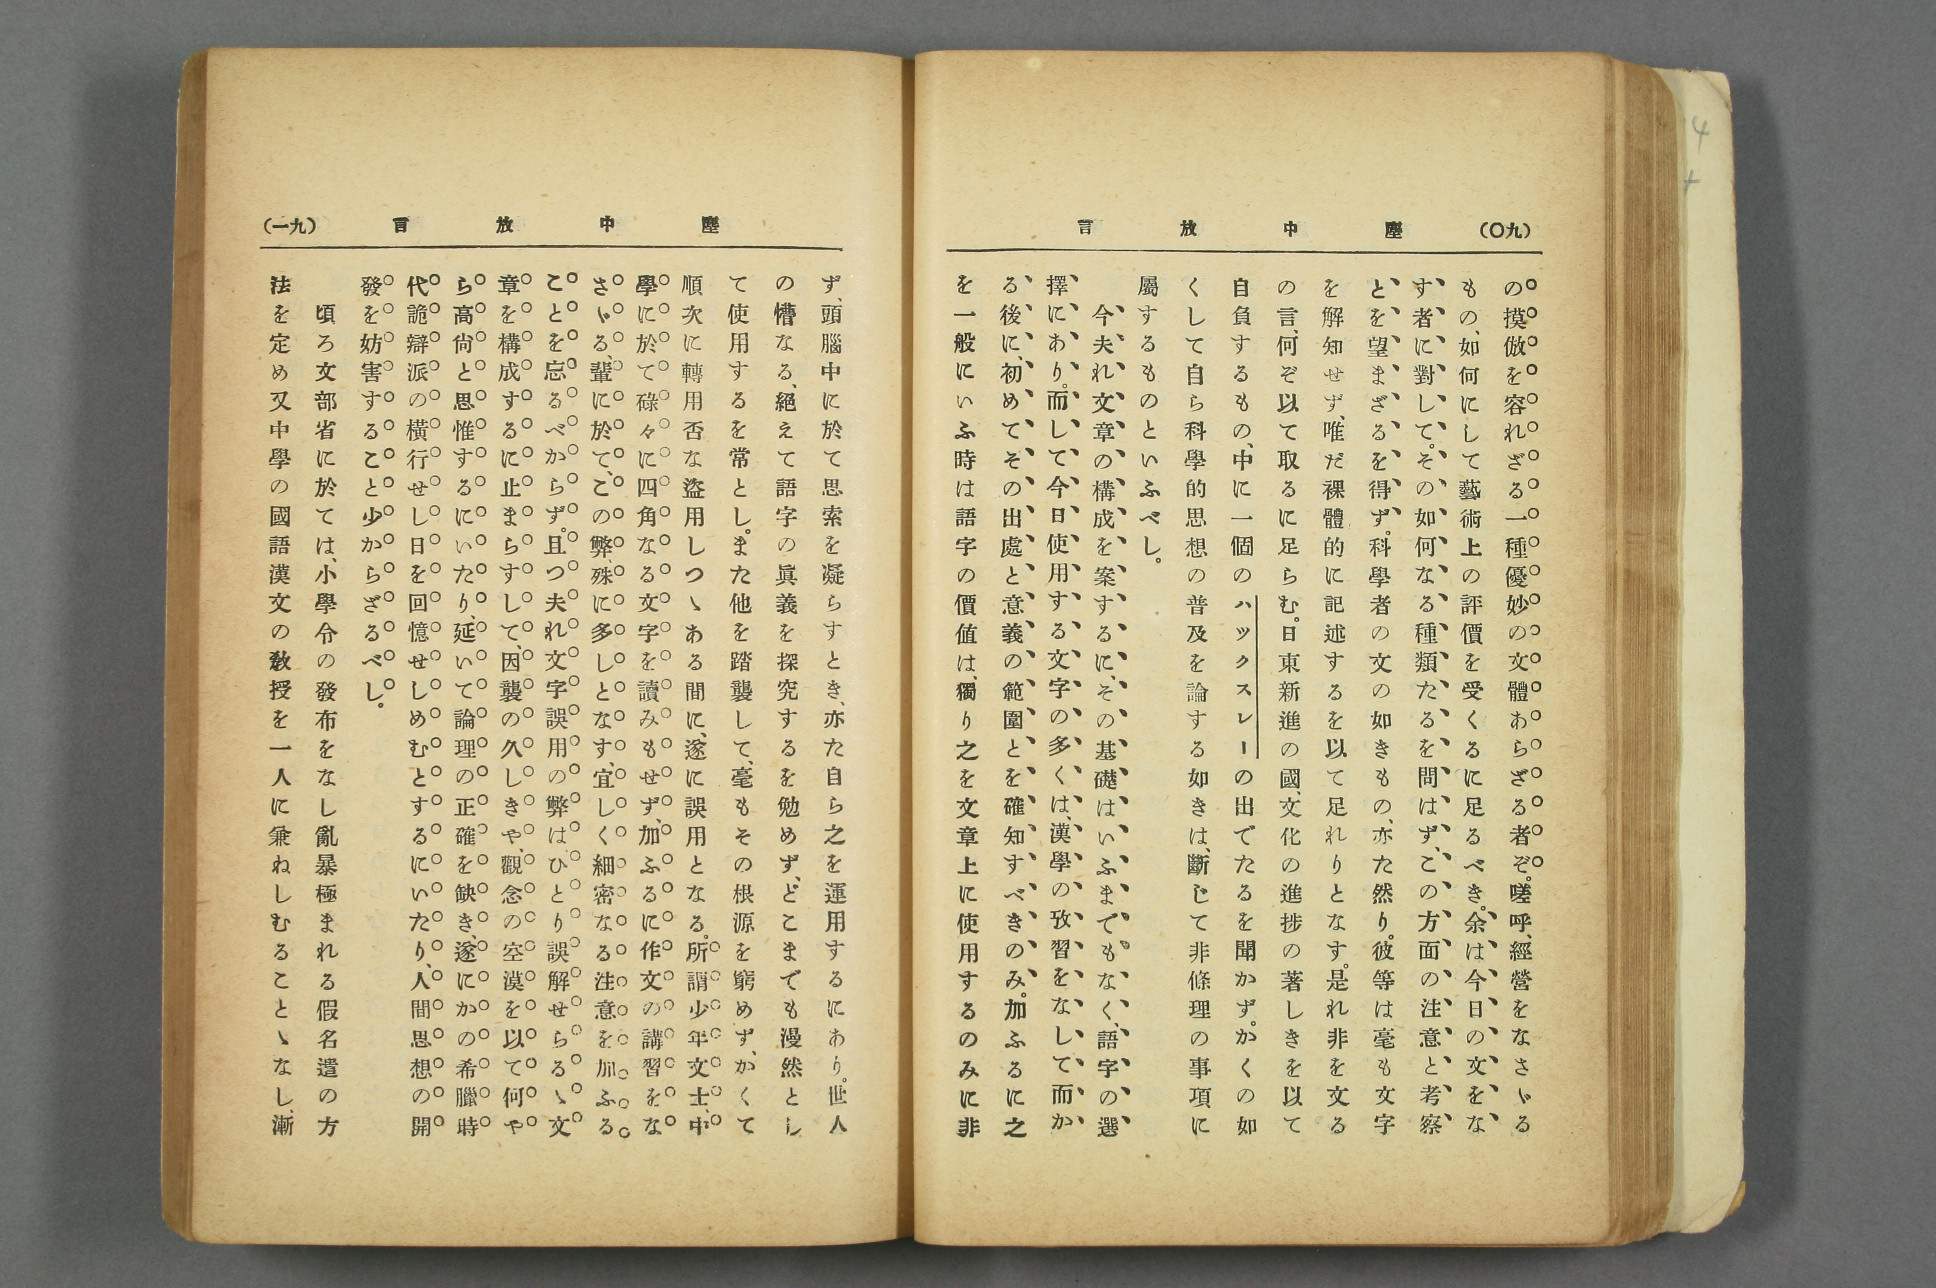 (九〇)　塵中放言
の摸倣を容れざる一種優妙の文體あらざる者ぞ。嗟呼、經營をなさゞる
もの、如何にして藝術上の評價を受くるに足るべき。余は今日の文をな
す者に對して。その如何なる種類たるを問はず、この方面の注意と考察
とを望まざるを得ず。科學者の文の如きもの、亦た然り。彼等は毫も文字
を解知せず、唯だ裸體的に記述するを以て足れりとなす。是れ非を文る
の言、何ぞ以て取るに足らむ。日東新進の國、文化の進捗の著しきを以て
自負するもの、中に一個のハックスレーの出でたるを聞かず。かくの如
くして自ら科學的思想の普及を論する如きは、斷じて非條理の事項に
屬するものといふべし。
今夫れ文章の構成を案するに、その基礎はいふまでもなく、語字の選
擇にあり。而して今日使用する文字の多くは、漢學の攷習をなして而か
る後に、初めてその出處と意義の範圍とを確知すべきのみ。加ふるに之
を一般にいふ時は語字の價値は、獨り之を文章上に使用するのみに非
塵中放言　(九一)
ず、頭腦中に於て思索を凝らすとき、亦た自ら之を運用するにあり。世人
の懵なる、絕えて語字の眞義を探究するを勉めず、どこまでも漫然とし
て使用するを常とし。また他を踏襲して、毫もその根源を窮めず、かくて
順次に轉用否な盜用しつゝある間に、遂に誤用となる。所謂少年文士、中
學に於て碌々に四角なる文字を讀みもせず、加ふるに作文の講習をな
さゞる、輩に於て、この弊、殊に多しとなす、宜しく細密なる注意を加ふる
ことを忘るべからず。且つ夫れ文字誤用の弊は、ひとり誤解せらるゝ文
章を構成するに止まらすして、因襲の久しきや、觀念の空漠を以て何や
ら高尙と思惟するにいたり、延いて論理の正確を缺き、遂にかの希臘時
代詭辯派の橫行せし日を回憶せしめむとするにいたり、人間思想の開
發を妨害すること少からざるべし。
頃ろ文部省に於ては、小學令の發布をなし亂暴極まれる假名遣の方
法を定め又中學の國語漢文の敎授を一人に兼ねしむることゝなし、漸
4
+